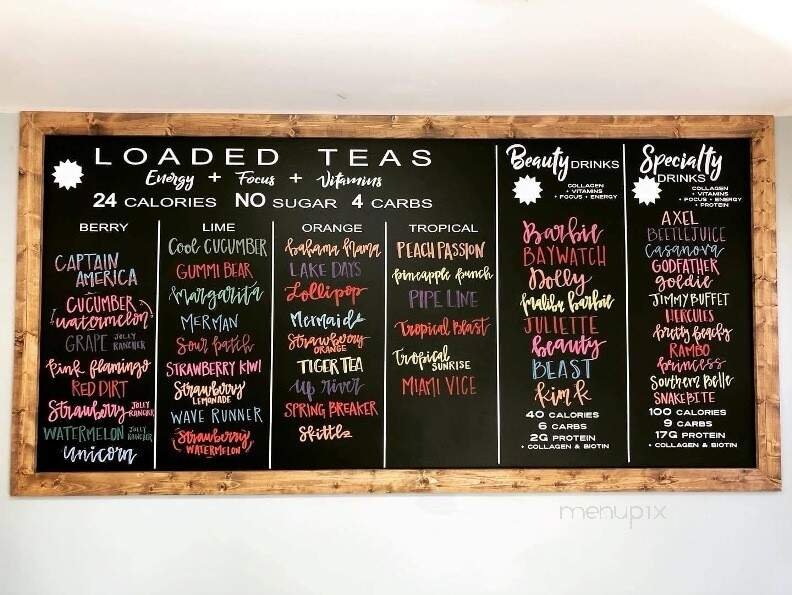 LOADED TEAS
Energy + Focus + Vitamins
24 CALORIES NO SUGAR 4 CARBS
BERRY
CAPTAIN
AMERICA
CUCUMBER
watermelon
GRAPE JOLLY
RANCHER
Pink flamingo
RED DIRT
Strawberry JOLLY
RANCHER
WATERMELON JOLLY
RANCHER
unicorn
LIME
Cool CUCUMBER
GUMMI BEAR
Margarita
MERMAN
Sour patch
STRAWBERRY KIWI
Strawberry
LEMONADE
WAVE RUNNER
(Strawberry)
WATERMELON
ORANGE
Bahama Mama
LAKE DAYS
Lollipop
Mermaid
Strawberry
ORANGE
TIGER TEA
up river
SPRING BREAKER
Skittle
TROPICAL
PEACH PASSION
pineapple punch
PIPE LINE
Tropical Beast
Tropical
SUNRISE
MIAMI VICE
Beauty DRINKS
COLLAGEN
+ VITAMINS
+ FOCUS + ENERGY
Barbie
BAYWATCH
Dolly
malibu barbie
JULIETTE
beauty
BEAST
Kim K
40 CALORIES
6 CARBS
2G PROTEIN
+ COLLAGEN & BIOTIN
Specialty
DRINKS
COLLAGEN
+ VITAMINS
+ FOCUS + ENERGY
+ PROTEIN
AXEL
BEETLEJUICE
Casanova
GODFATHER
goldie
JIMMY BUFFET
HERCULES
pretty peachy
RAMBO
princess
Southern Belle
SNAKEBITE
100 CALORIES
9 CARBS
17G PROTEIN
+ COLLAGEN & BIOTIN
menupix